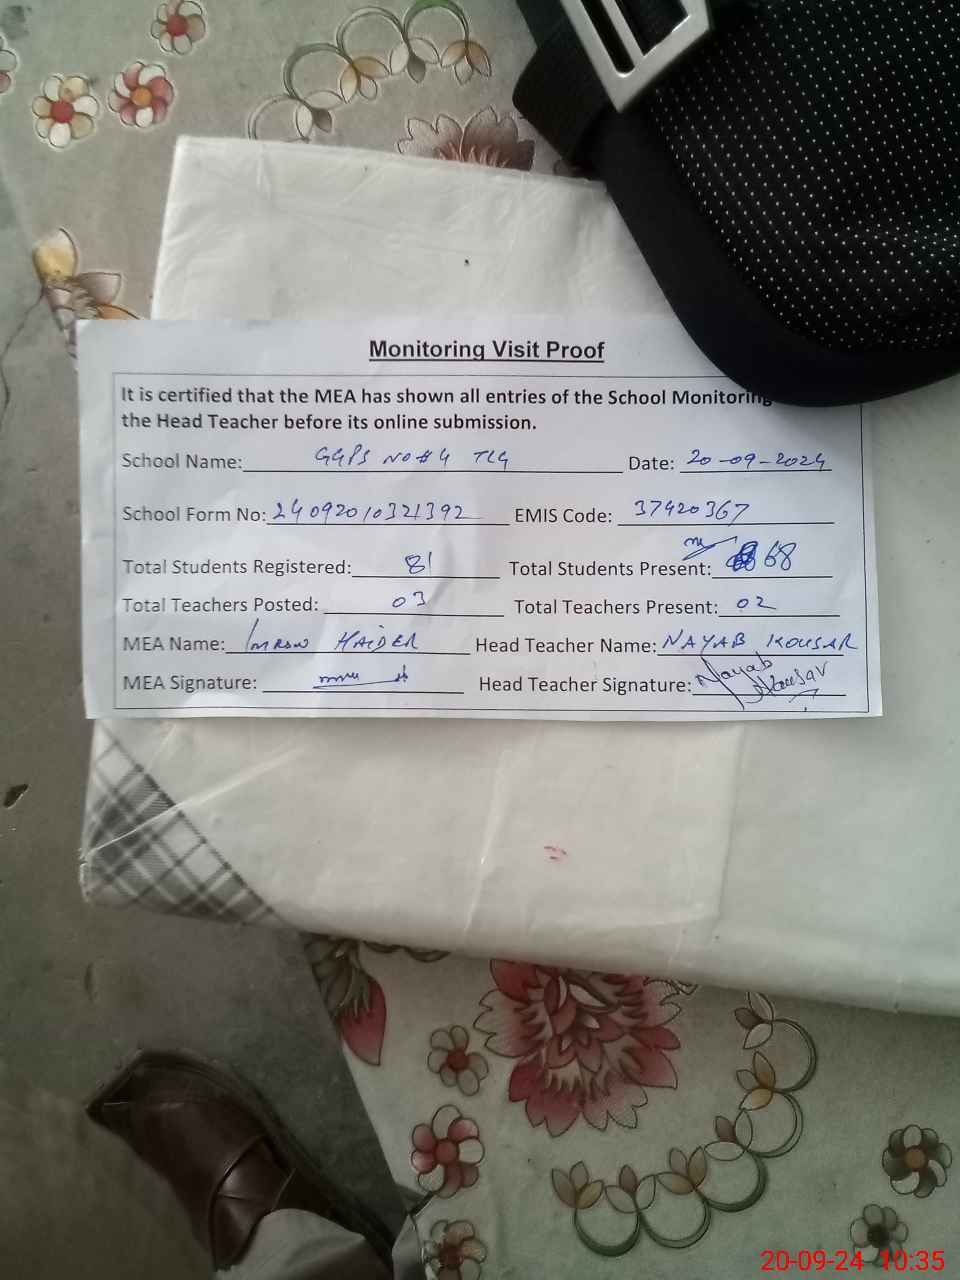 Monitoring Visit Proof
It is certified that the MEA has shown all entries of the School Monitoring
the Head Teacher before its online submission.
School Name: GGPS NO#4 TLG Date: 20-09-2024
School Form No: 24092010321392 EMIS Code: 37420367
Total Students Registered: 81 Total Students Present: 68
Total Teachers Posted: 03 Total Teachers Present: 02
MEA Name: Imran HAIDER Head Teacher Name: NAYAB KOUSAR
MEA Signature: Head Teacher Signature: Nayab Kousar
20-09-24 10:35